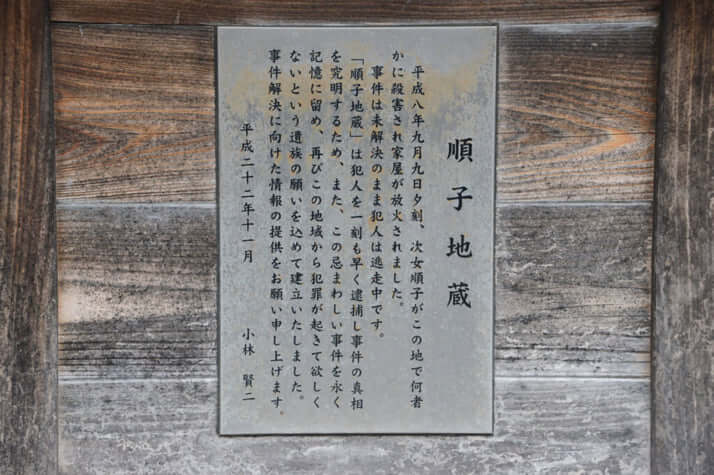 順子地蔵
平成八年九月九日夕刻、次女順子がこの地で何者
かに殺害され家屋が放火されました。
事件は未解決のまま犯人は逃走中です。
「順子地蔵」は犯人を一刻も早く逮捕し事件の真相
を究明するため、また、この忌まわしい事件を永く
記憶に留め、再びこの地域から犯罪が起きて欲しく
ないという遺族の願いを込めて建立いたしました。
事件解決に向けた情報の提供をお願い申し上げます。
平成二十二年十一月
小林 賢二